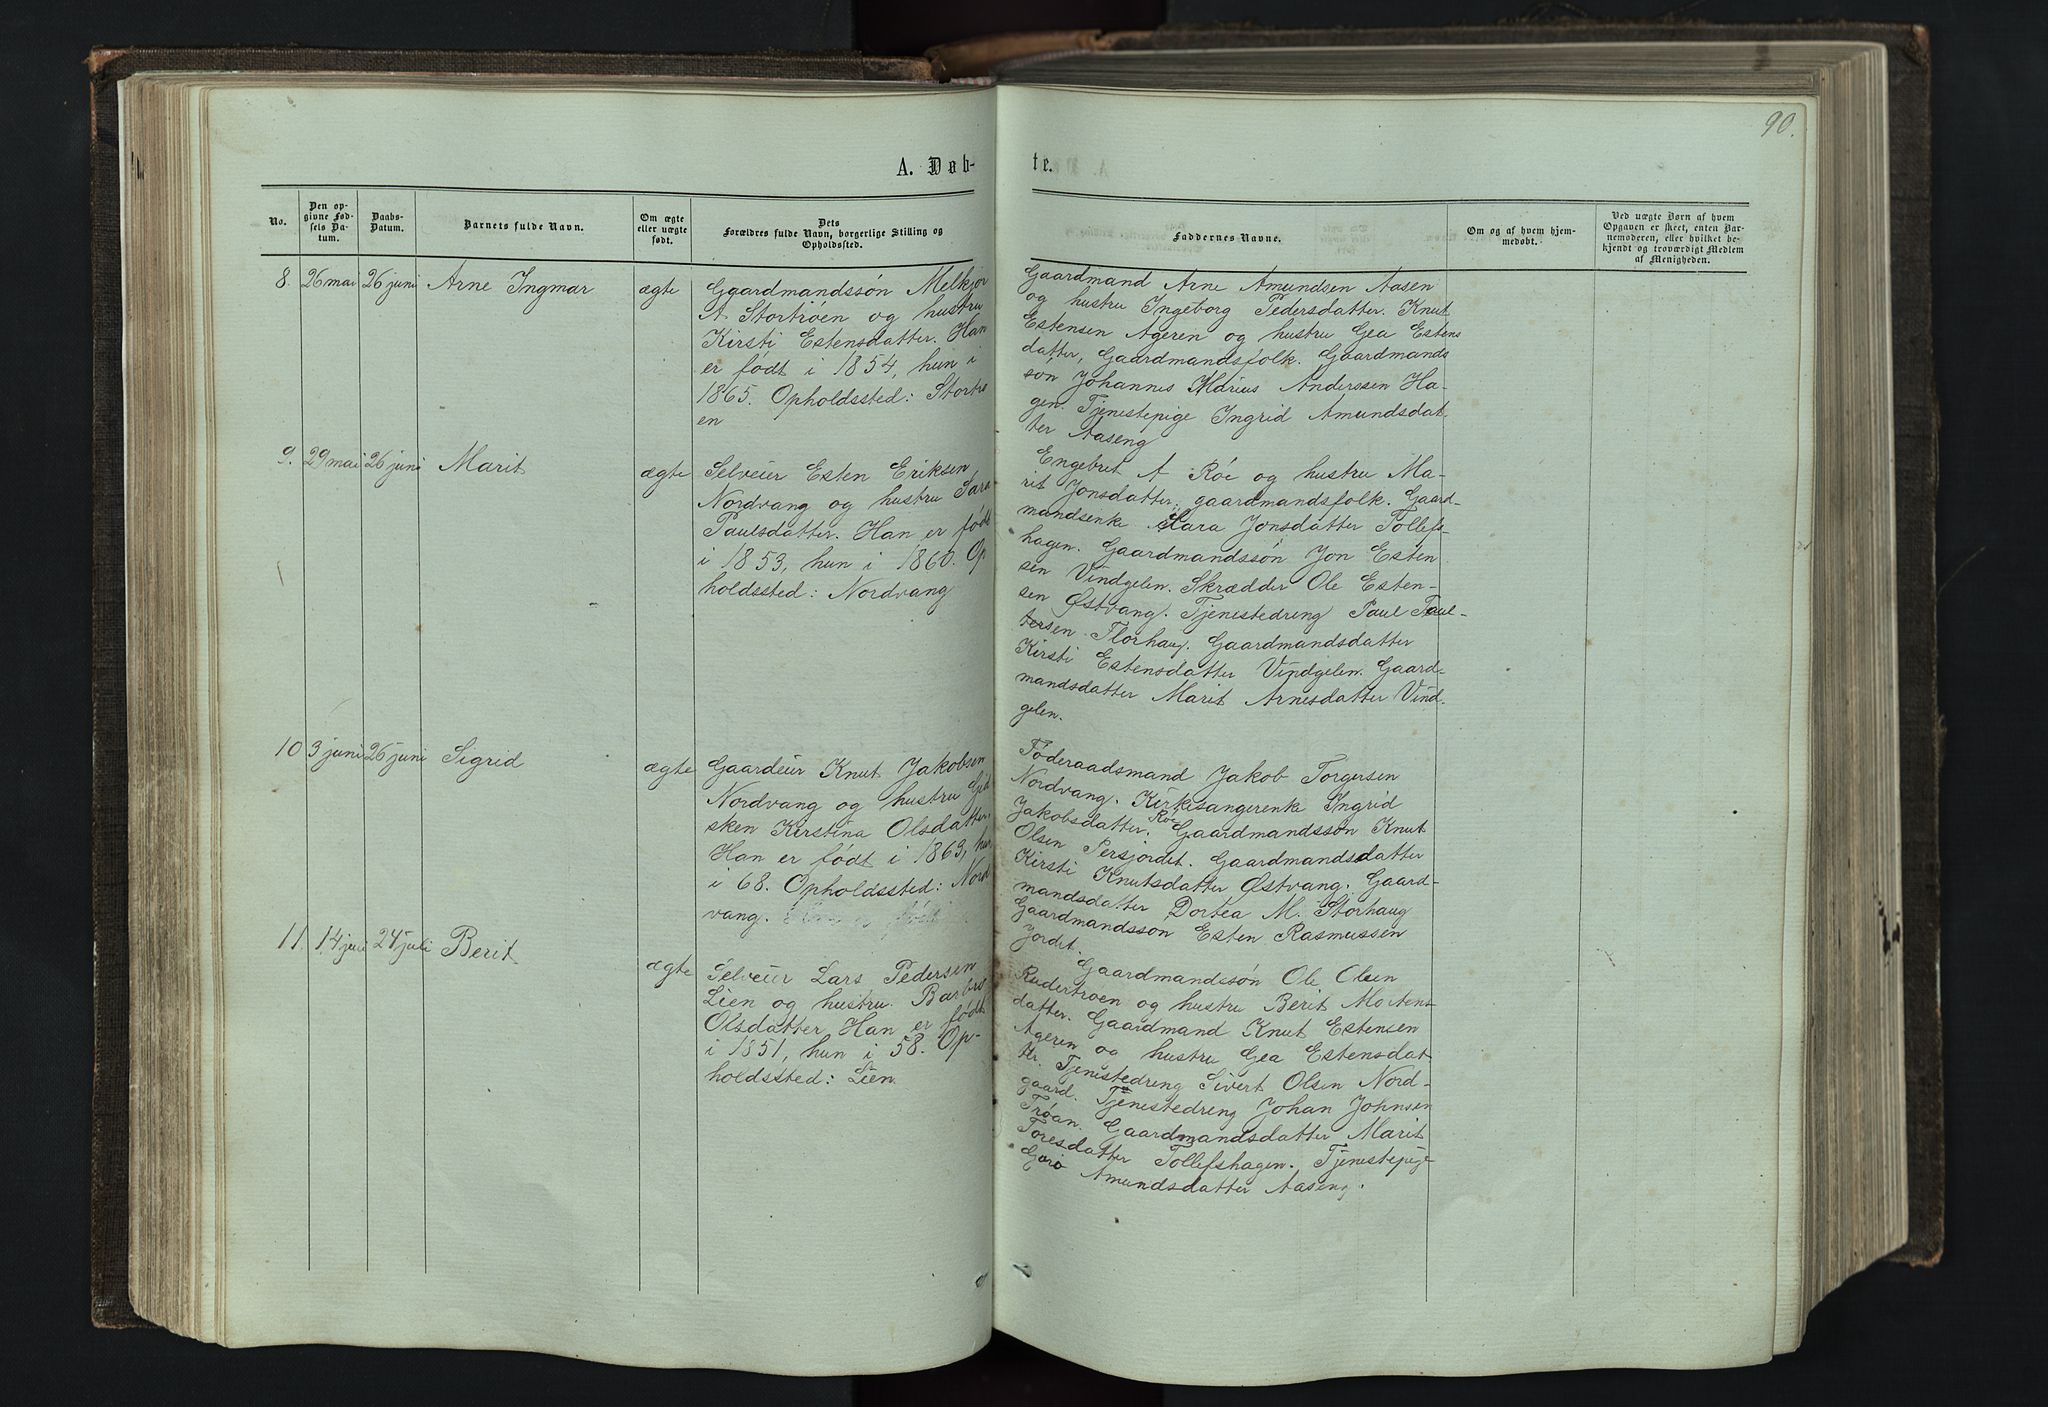 90.
A. Døb-
te.
No.
Den op-
givne Fød-
sels Da-
tum.
Daabs-
Datum.
Barnets fulde Navn.
Om ægte
eller uægte
født.
Dets
Forældres fulde Navn, borgerlige Stilling og
Opholdssted.
Faddernes Navne.
Om og af hvem hjem-
medøbt.
Ved uægte Børn af hvem
Opgaven er skeet, enten Bar-
nemoderen, eller hvilket be-
kjendt og troværdigt Medlem
af Menigheden.
8. 26 mai 26 juni Arne Ingmar ægte
Gaardmandssøn Melkjor
A. Stortrøen og hustru
Kirsti Estensdatter. Han
er født i 1854, hun i
1865. Opholdssted: Stortrø
en
Gaardmand Arne Amundsen Aasen
og hustru Ingeborg Pedersdatter. Knut
Estensen Ageren og hustru Gea Estens
datter, Gaardmandsfolk. Gaardmands
søn Johannes Marius Anderssen Ha-
gen. Tjenestepige Ingrid Amundsdat
ter Aaseng
9. 29 mai 26 juni Marit ægte
Selveier Esten Eriksen
Nordvang og hustru Sara
Paulsdatter. Han er født
i 1853, hun i 1860. Op
holdssted: Nordvang
Engebret A Røe og hustru Ma-
rit Jonsdatter, gaardmandsfolk. Gaard-
mandsenke Sara Jonsdatter Tollefs-
hagen. Gaardmandssøn Jon Esten
sen Vindgelen. Skrædder Ole Esten-
sen Østvang. Tjenestedreng Paul Paul-
sen Florhaug. Gaardmandsdatter
Kirsti Estensdatter Vindgelen. Gaard-
mandsdatter Marit Arnesdatter Vind-
gelen.
10 3 juni 26 juni Sigrid ægte
Gaardeier Knut Jakobsen
Nordvang og hustru Gid
sken Kirstina Olsdatter.
Han er født i 1863, hun
i 68. Opholdssted: Nord
vang.
Føderaadsmand Jakob Torgersen
Nordvang. Kirkesangerenke Ingrid
Jakobsdatter Røe. Gaardmandssøn Knut
Olsen Persjordet. Gaardmandsdatter
Kirsti Knutsdatter Østvang. Gaard-
mandsdatter Dortea M. Storhaug
Gaardmandsson Esten Rasmussen
Jordet.
11. 14 juni 24 juli Berit ægte
Selveier Lars Pedersen
Lien og hustru Barbro
Olsdatter Han er født
i 1851, hun i 58. Op-
holdssted: Lien.
Gaardmandssøn Ole Olsen
Rudertroen og hustru Berit Mortens
datter. Gaardmand Knut Estensen
Ageren og hustru Gea Estensdat
ter. Tjenestedreng Sivert Olsen Nord-
gaard. Tjenestedreng Johan Johnsen
Trøan. Gaardmandsdatter Marit
Toresdatter Tollefshagen. Tjenestepige
Goro Amundsdatter Aaseng.